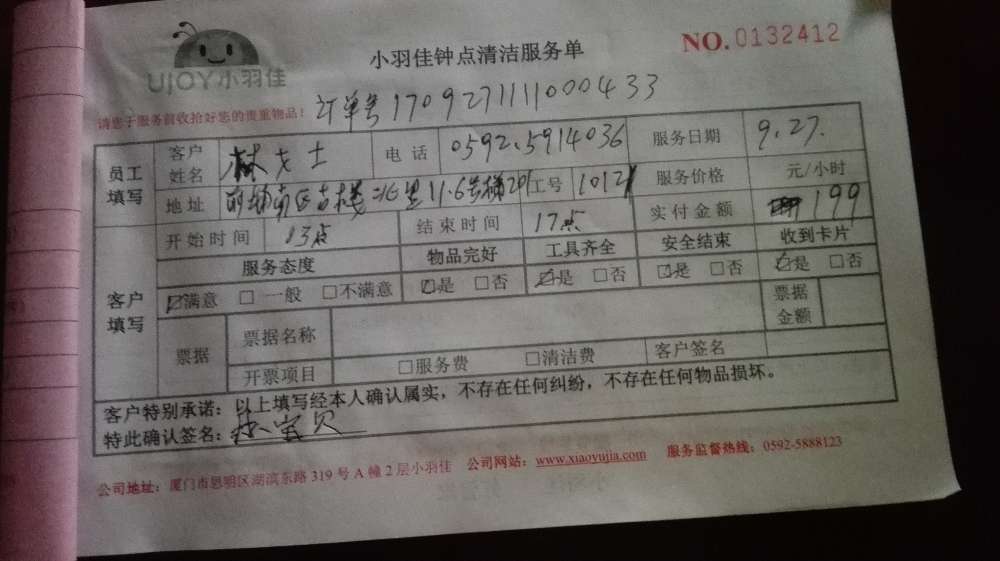 UJOY小羽佳
小羽佳钟点清洁服务单
NO.0132412
请您于服务前收拾好您的贵重物品!
订单号17092711110000433
员工填写
客户姓名 林女士 电话 0592.5914036 服务日期 9.27.
地址 北里11.6号楼 工号 1012 服务价格 元/小时
客户填写
开始时间 13点 结束时间 17点 实付金额 199
服务态度 物品完好 工具齐全 安全结束 收到卡片
☑满意 □一般 □不满意 ☑是 □否 ☑是 □否 ☑是 □否 ☑是 □否
票据 票据名称 票据金额
开票项目 □服务费 □清洁费 客户签名
客户特别承诺:以上填写经本人确认属实,不存在任何纠纷,不存在任何物品损坏。
特此确认签名:
公司地址:厦门市思明区湖滨东路 319 号 A 幢 2 层小羽佳 公司网站:www.xiaoyujia.com 服务监督热线:0592-5888123